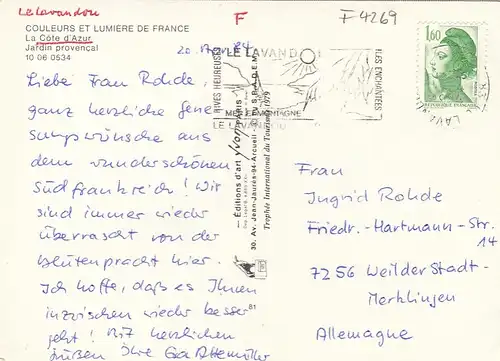 Le Lavandou
F
F 4269
COULEURS ET LUMIERE DE FRANCE
La Côte d'Azur
Jardin provençal
10 06 0534
Liebe Frau Rohde,
ganz herzliche Gene-
sungswünsche aus
dem wunderschönen
Südfrankreich! Wir
sind immer wieder
überrascht von der
Blütenpracht hier.
Ich hoffe, daß es Ihnen
inzwischen wieder besser
geht! Mit herzlichen
Grüßen Ihre
81
RIVES HEUREUSES
LE LAVANDOU
MER ET MONTAGNE
LE LAVANDOU
ILES ENCHANTEES
1,60
REPUBLIQUE FRANÇAISE
— Éditions d'art yvon
30, Av. Jean-Jaurès-94-Arcueil
Trophée International du Tourisme 1979
Frau
Ingrid Rohde
Friedr.-Hartmann-Str.
14
7256 Weil der Stadt-
Merklingen
Allemagne